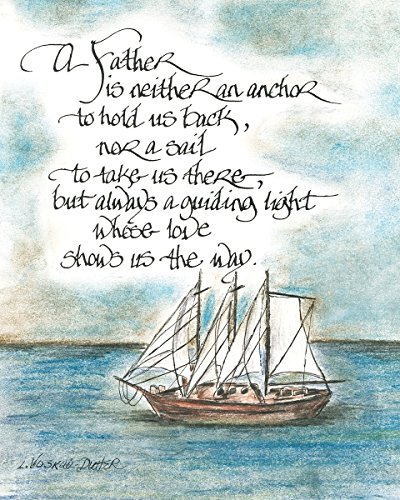 A Father
is neither an anchor
to hold us back,
nor a sail
to take us there,
but always a guiding light
whose love
shows us the way.